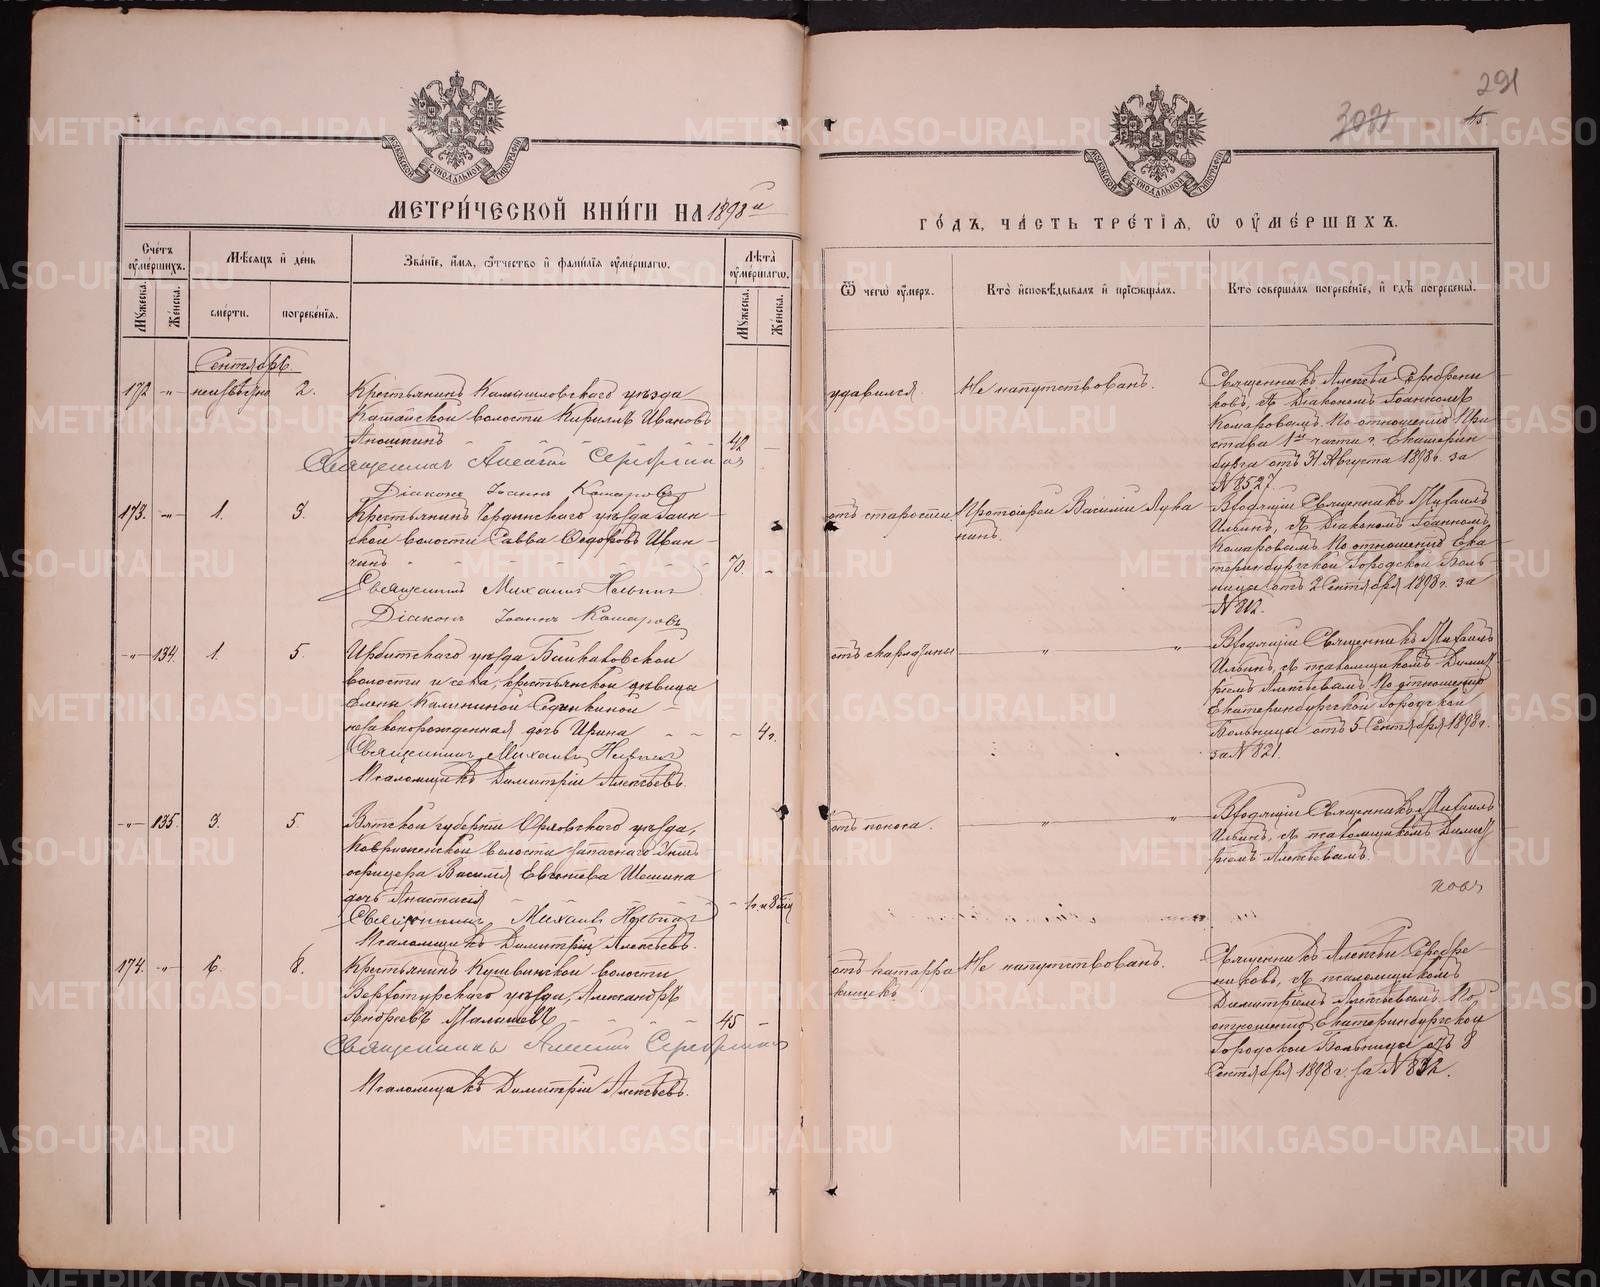 291
МЕТРИ́ЧЕСКОЙ КНИ́ГИ НА 1898й
ГО́ДЪ, ЧА́СТЬ ТРЕ́ТІѦ, Ѽ ОУМЕ́РШИХЪ.
Сче́тъ оумершихъ.
Мѣ́сяцъ и де́нь
Зва́нїе, и́мя, ѻ́тчество и фами́лія оуме́ршагѡ.
Лѣта̀ оуме́ршагѡ.
Ѿ чегѡ̀ оу́меръ.
Кто̀ и҆сповѣ́дывалъ и҆ прїѡбща́лъ.
Кто̀ соверша́лъ погребе́нїе, и҆ гдѣ̀ погребены̀.
Мꙋ́жеска.
Же́нска.
сме́рти.
погребе́нїя.
Мꙋ́жеска.
Же́нска.
Сентябрь
172 -"- неизвѣстно 2.
Крестьянинъ Камышловскаго уѣзда
Катайской волости Кириллъ Ивановъ
Аношкинъ - - - - 42 -
Священникъ Алексій Серебрениковъ
Діаконъ Іоаннъ Комаровъ
удавился
Не напутствованъ.
Священникъ Алексѣй Серебрени-
ковъ, съ Діакономъ Іоанномъ
Комаровымъ. По отношенію При-
става 1ой части г. Екатерин-
бурга отъ 31 Августа 1898 г. за
№ 8527.
173. -"- 1. 3.
Крестьянинъ Чердынскаго уѣзда Гаин-
ской волости Савва Ѳедоровъ Иван-
чинъ - - - - 70. -
Священникъ Михаилъ Ильинъ
Діаконъ Іоаннъ Комаровъ
отъ старости
Протоіерей Василій Лука-
нинъ.
Входящій Священникъ Михаилъ
Ильинъ, съ Діакономъ Іоанномъ
Комаровымъ По отношенію Ека-
теринбургской Городской Боль-
ницы отъ 2 Сентября 1898 г. за
№ 812.
-"- 134. 1. 5.
Ирбитскаго уѣзда
волости и села, крестьянской дѣвицы
Елены Калининой
незаконорожденная дочь Ирина - - - 4 г.
Священникъ Михаилъ Ильинъ
Псаломщикъ Димитрій Алексѣевъ.
отъ скарлатины
" "
Входящій Священникъ Михаилъ
Ильинъ, съ псаломщикомъ Димит-
ріемъ Алексѣевымъ По отношенію
Екатеринбургской Городской
Больницы отъ 5 Сентября 1898 г.
за № 821.
-"- 135. 3. 5.
Вятской губерніи Орловскаго уѣзда,
волости запаснаго Унтъ
офицера Василія Евсѣева Шешина
дочь Анастасія - - - 1 г. и 8 мц
Священникъ Михаилъ Ильинъ
Псаломщикъ Димитрій Алексѣевъ.
отъ поноса.
" "
Входящій Священникъ Михаилъ
Ильинъ, съ псаломщикомъ Димит-
ріемъ Алексѣевымъ.
174. -"- 6. 8.
Крестьянинъ Кушвинской волости
Верхотурскаго уѣзда, Александръ
Андреевъ Малышевъ - - - 45 -
Священникъ Алексій Серебрениковъ
Псаломщикъ Димитрій Алексѣевъ.
отъ катарра
кишекъ
Не напутствованъ.
Священникъ Алексѣй Серебре-
никовъ, съ псаломщикомъ
Димитріемъ Алексѣевымъ. По
отношенію Екатеринбургской
Городской Больницы отъ 8
Сентября 1898 г. за № 832.
METRIKI.GASO-URAL.RU